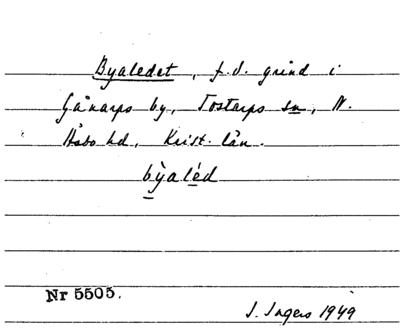 Byaledet, f.d. grind i
Gånarps by, Tostarps sn, N.
Åsbo hd, Krist. län.
bỳaléd
Nr 5505.
J. Ingers 1949